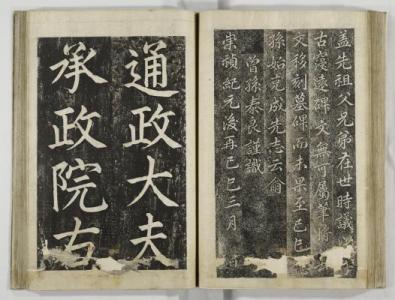 盖先祖父兄弟在世時議
古寔遠碑文無可屬筆將
文移刻墓碑而未果至己巳
孫始克成先志云爾
曾孫泰良謹識
崇禎紀元後再己巳三月
通政大夫
承政院右